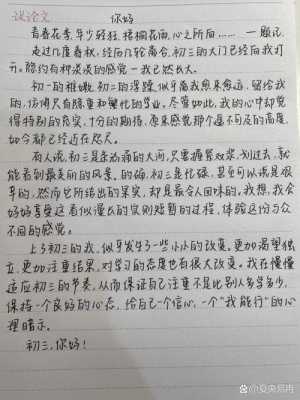 议论文
你好
青春花季,年少轻狂,梧桐花雨,心之所向……—题记
走过几度春秋,经历几轮离合,初三的大门已经向我打
开。隐约有种淡淡的感觉—我已然长大。
初一的稚嫩,初二的浮躁,似乎离我愈来愈远,留给我
的,仿佛只有隐重和繁忙的学业。尽管如此,我的心中却觉
得特别的充实,十分的期待,原来感觉那个遥不可及的高度,
如今都已经近在咫尺。
有人说,初三是条如痛的大河,只要撸紧双桨,划过去,就
能看到最美丽的风景。的确,初三是忙碌,甚至可以说是艰
辛的,然而它所结出的果实,却是最令人回味的,我想,我会
好好享受这看似漫长的实则短暂的过程,体验这份与众
不同的感觉。
上了初三的我,似乎发生了一些小小的改变,更加渴望独
立,更加注重结果,对学习的态度也有很大改变。我在慢慢
适应初三的节奏,从而保证自己注重不是比别人多学多少,
保持一个良好的心态,给自己一个信心,一个“我能行”的心
理暗示。
初三,你好!
@夏央郑冉